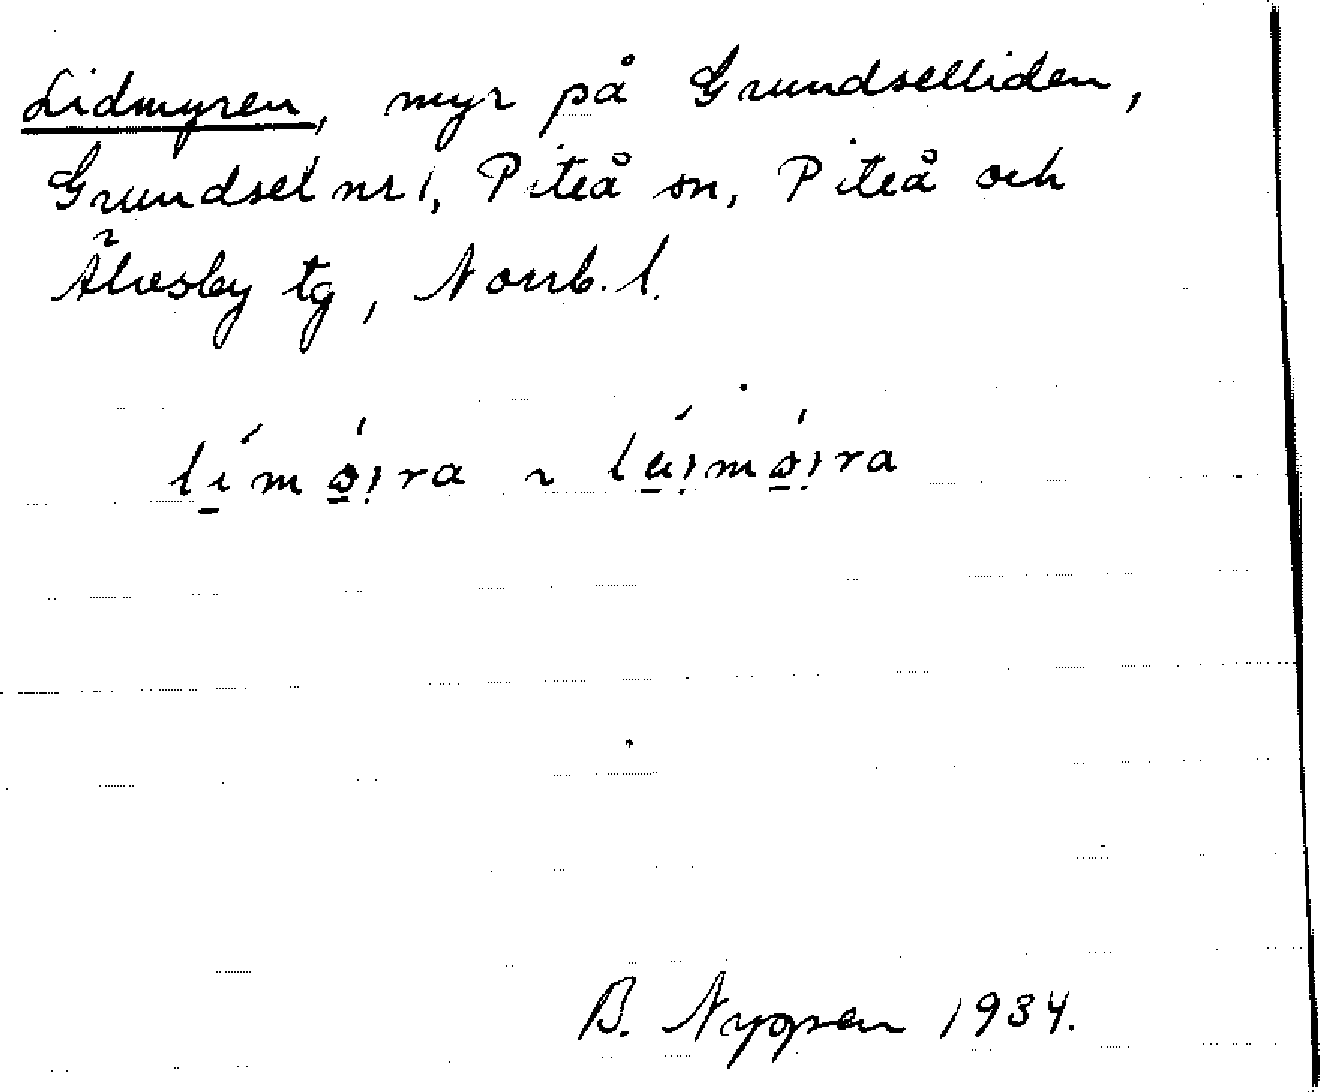 Lidmyren, myr på Grundselliden,
Grundsel nr 1, Piteå sn, Piteå och
Älvsby tg, Norrb. l.
B. Nygren 1934.